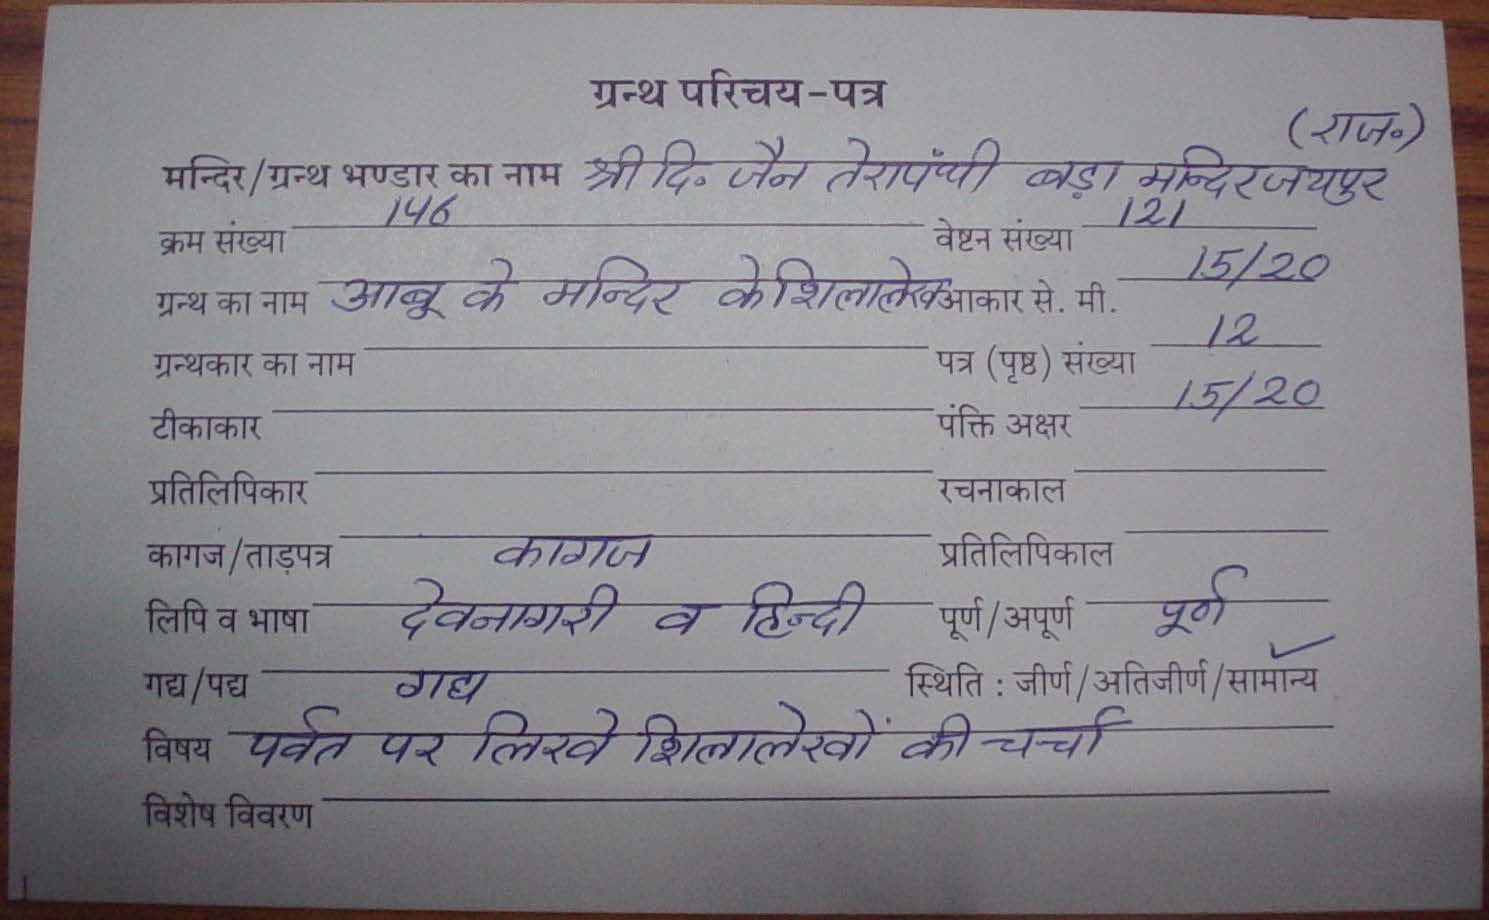 ग्रन्थ परिचय-पत्र
(राज॰)
मन्दिर/ग्रन्थ भण्डार का नाम श्री दि॰ जैन तेरापंथी बड़ा मन्दिर जयपुर
क्रम संख्या 146 वेष्टन संख्या 121
ग्रन्थ का नाम आबू के मन्दिर के शिलालेख आकार से. मी. 15/20
ग्रन्थकार का नाम पत्र (पृष्ठ) संख्या 12
टीकाकार पंक्ति अक्षर 15/20
प्रतिलिपिकार रचनाकाल
कागज/ताड़पत्र कागज प्रतिलिपिकाल
लिपि व भाषा देवनागरी व हिन्दी पूर्ण/अपूर्ण पूर्ण
गद्य/पद्य गद्य स्थिति : जीर्ण/अतिजीर्ण/सामान्य ✓
विषय पर्वत पर लिखे शिलालेखों की चर्चा
विशेष विवरण